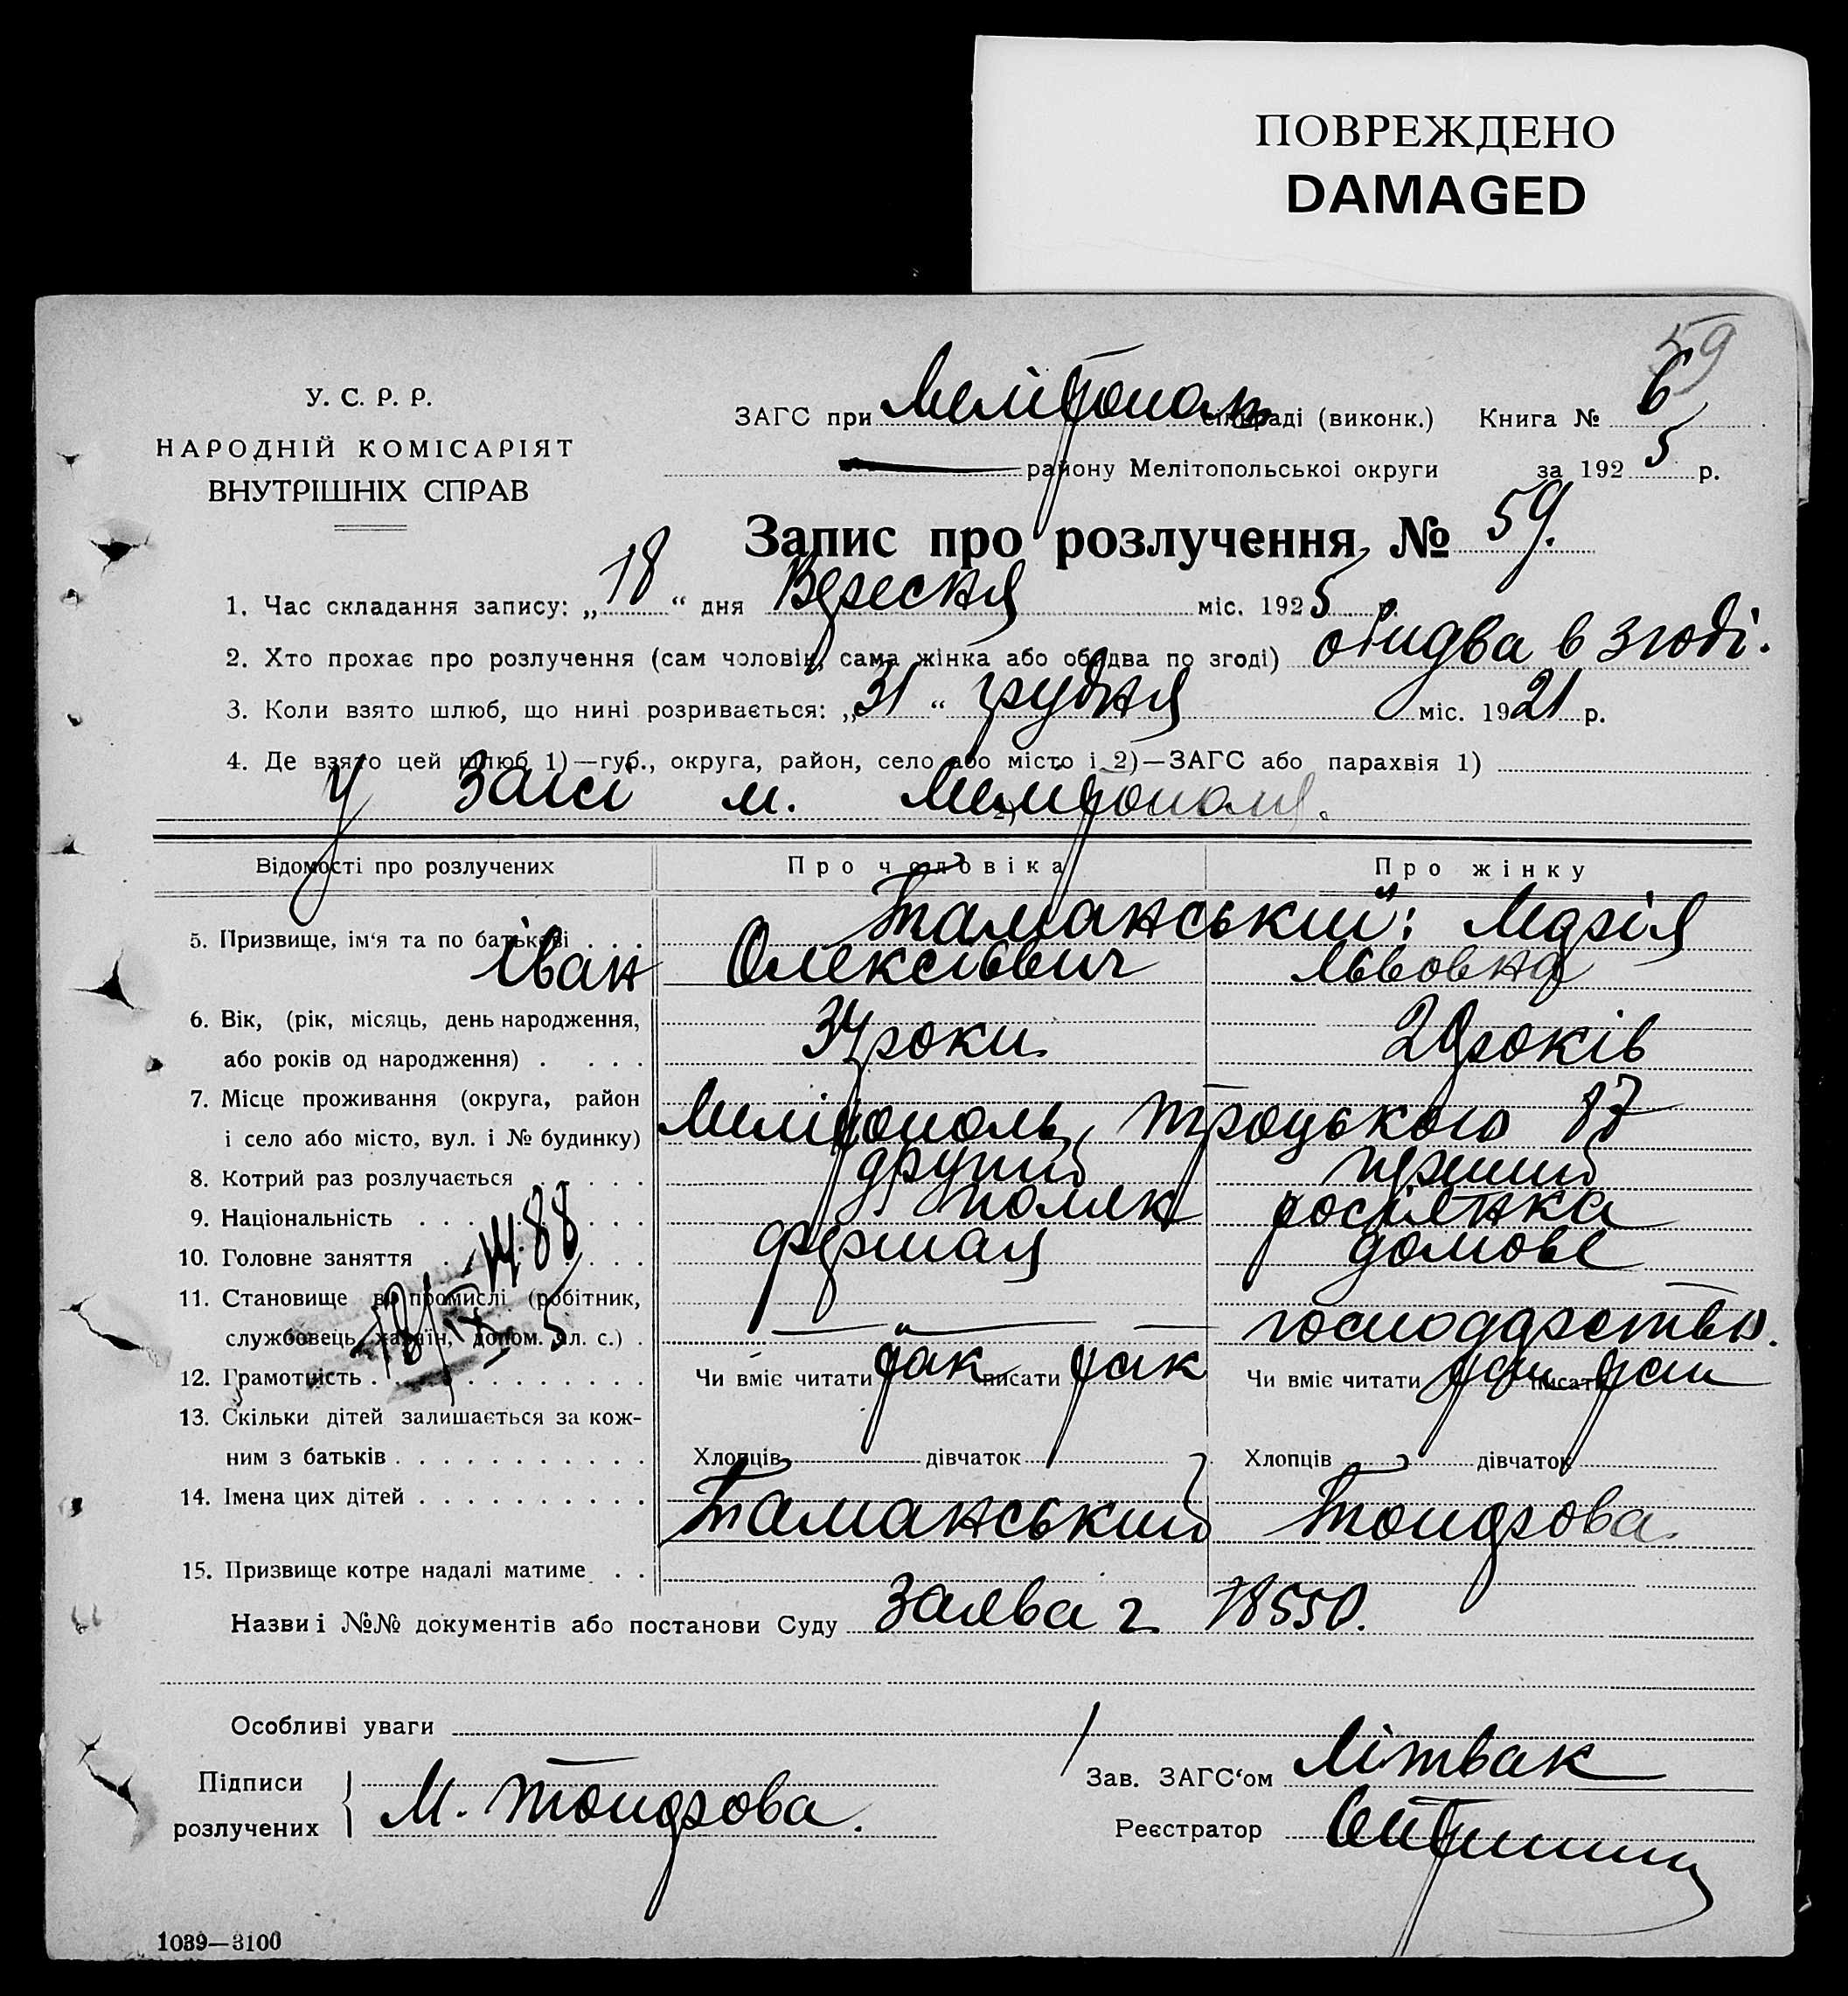 ПОВРЕЖДЕНО
DAMAGED
59
У. С. Р. Р.
НАРОДНІЙ КОМІСАРІЯТ
ВНУТРІШНІХ СПРАВ
ЗАГС при Мелітополь сільраді (виконк.) Книга № 6
району Мелітопольської округи за 1925 р.
Запис про розлучення № 59.
1. Час складання запису: „18“ дня Вересня міс. 1925 р.
2. Хто прохає про розлучення (сам чоловік, сама жінка або обидва по згоді) обидва в згоді.
3. Коли взято шлюб, що нині розривається: „31“ грудня міс. 1921 р.
4. Де взято цей шлюб 1)—губ., округа, район, село або місто і 2)—ЗАГС або парахвія 1)
у Загсі м. Мелітополя.
Відомості про розлучених Про чоловіка Про жінку
5. Призвище, ім‘я та по батькові . . . Таманський: Марія
Іван Олексієвич Львовна
6. Вік, (рік, місяць, день народження,
або років од народження) . . . . 34 роки. 29 років
7. Місце проживання (округа, район
і село або місто, вул. і № будинку) Мелітополь, Троцького 87
8. Котрий раз розлучається . . . . другий перший
9. Національність . . . . . . . . поляк росіянка
10. Головне заняття . . . . . . . фершал домове
11. Становище в промислі (робітник,
службовець, хазяїн, допом. чл. с.) . — „ — — господарство.
12. Грамотність . . . . . . . . . . Чи вміє читати так писати так Чи вміє читати так писати так
13. Скільки дітей залишається за кож-
ним з батьків . . . . . . . . . . Хлопців дівчаток Хлопців дівчаток
14. Імена цих дітей . . . . . . . . .
Таманський
15. Призвище котре надалі матиме . .
Назви і №№ документів або постанови Суду Заява 2 78550.
Особливі уваги
Підписи
розлучених М.
Зав. ЗАГС‘ом Літвак
Реєстратор
1039—3100